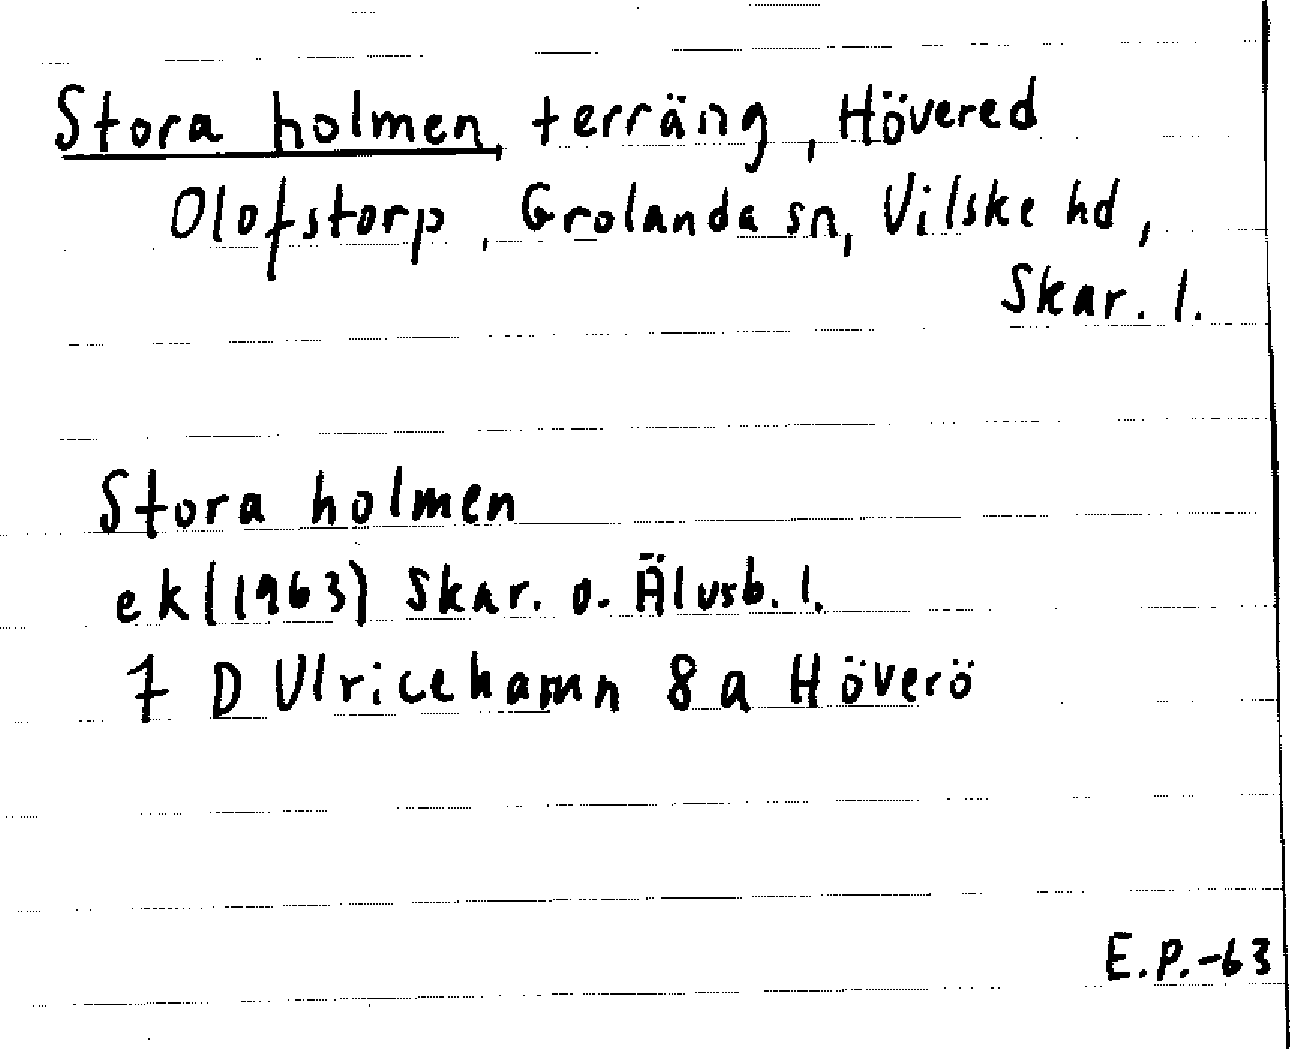 Stora holmen, terräng, Hövered
Olofstorp, Grolanda sn, Vilske hd,
Skar. l.
Stora holmen
ek (1963) Skar. o. Älvsb. l.
7 D Ulricehamn 8 a Höverö
E.P.-63